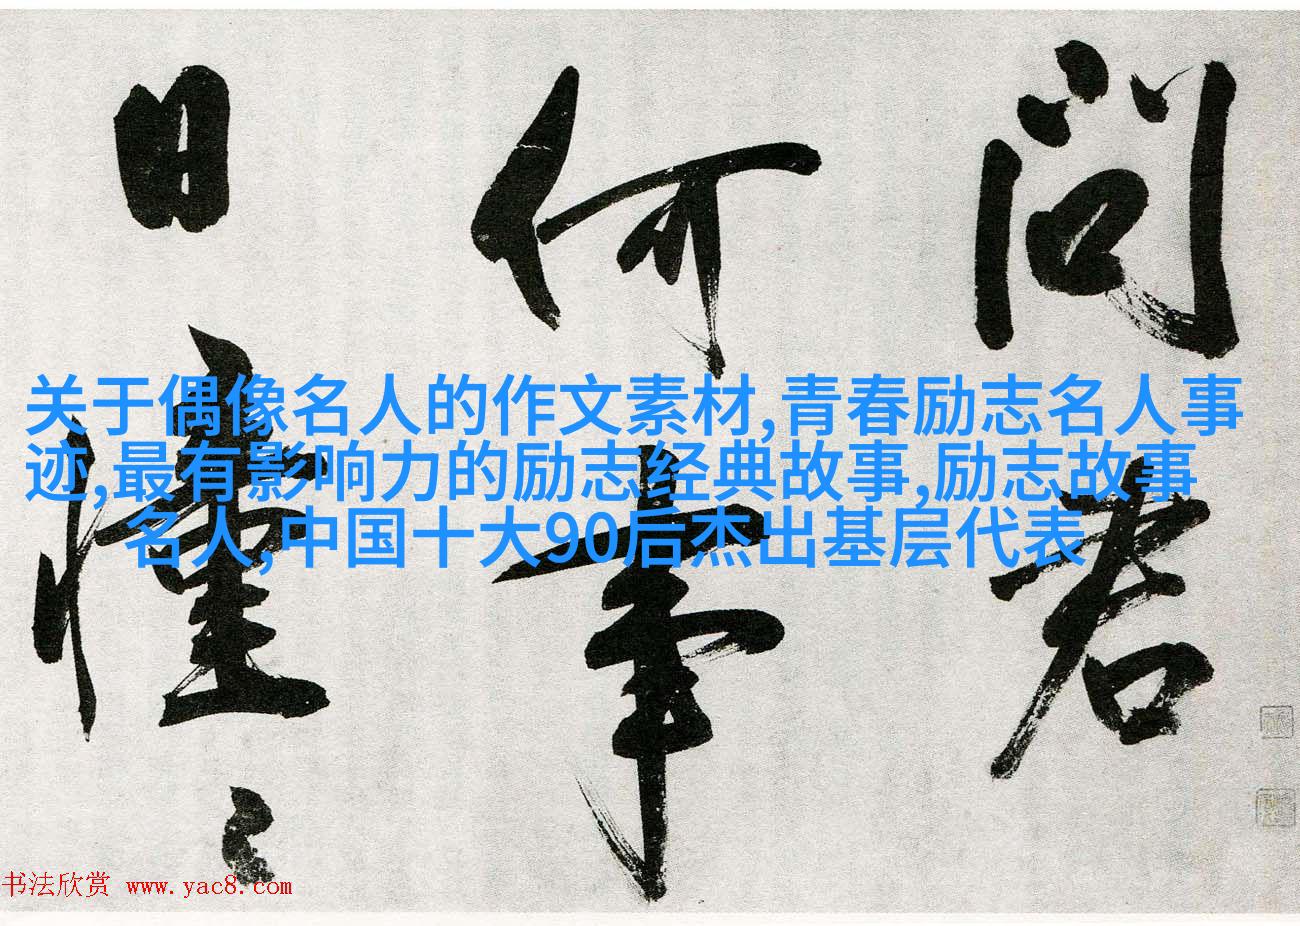 问君
何事
日憧々
关于偶像名人的作文素材,青春励志名人事
迹,最有影响力的励志经典故事,励志故事
名人,中国十大90后杰出基层代表
书法欣赏 www.yac8.com